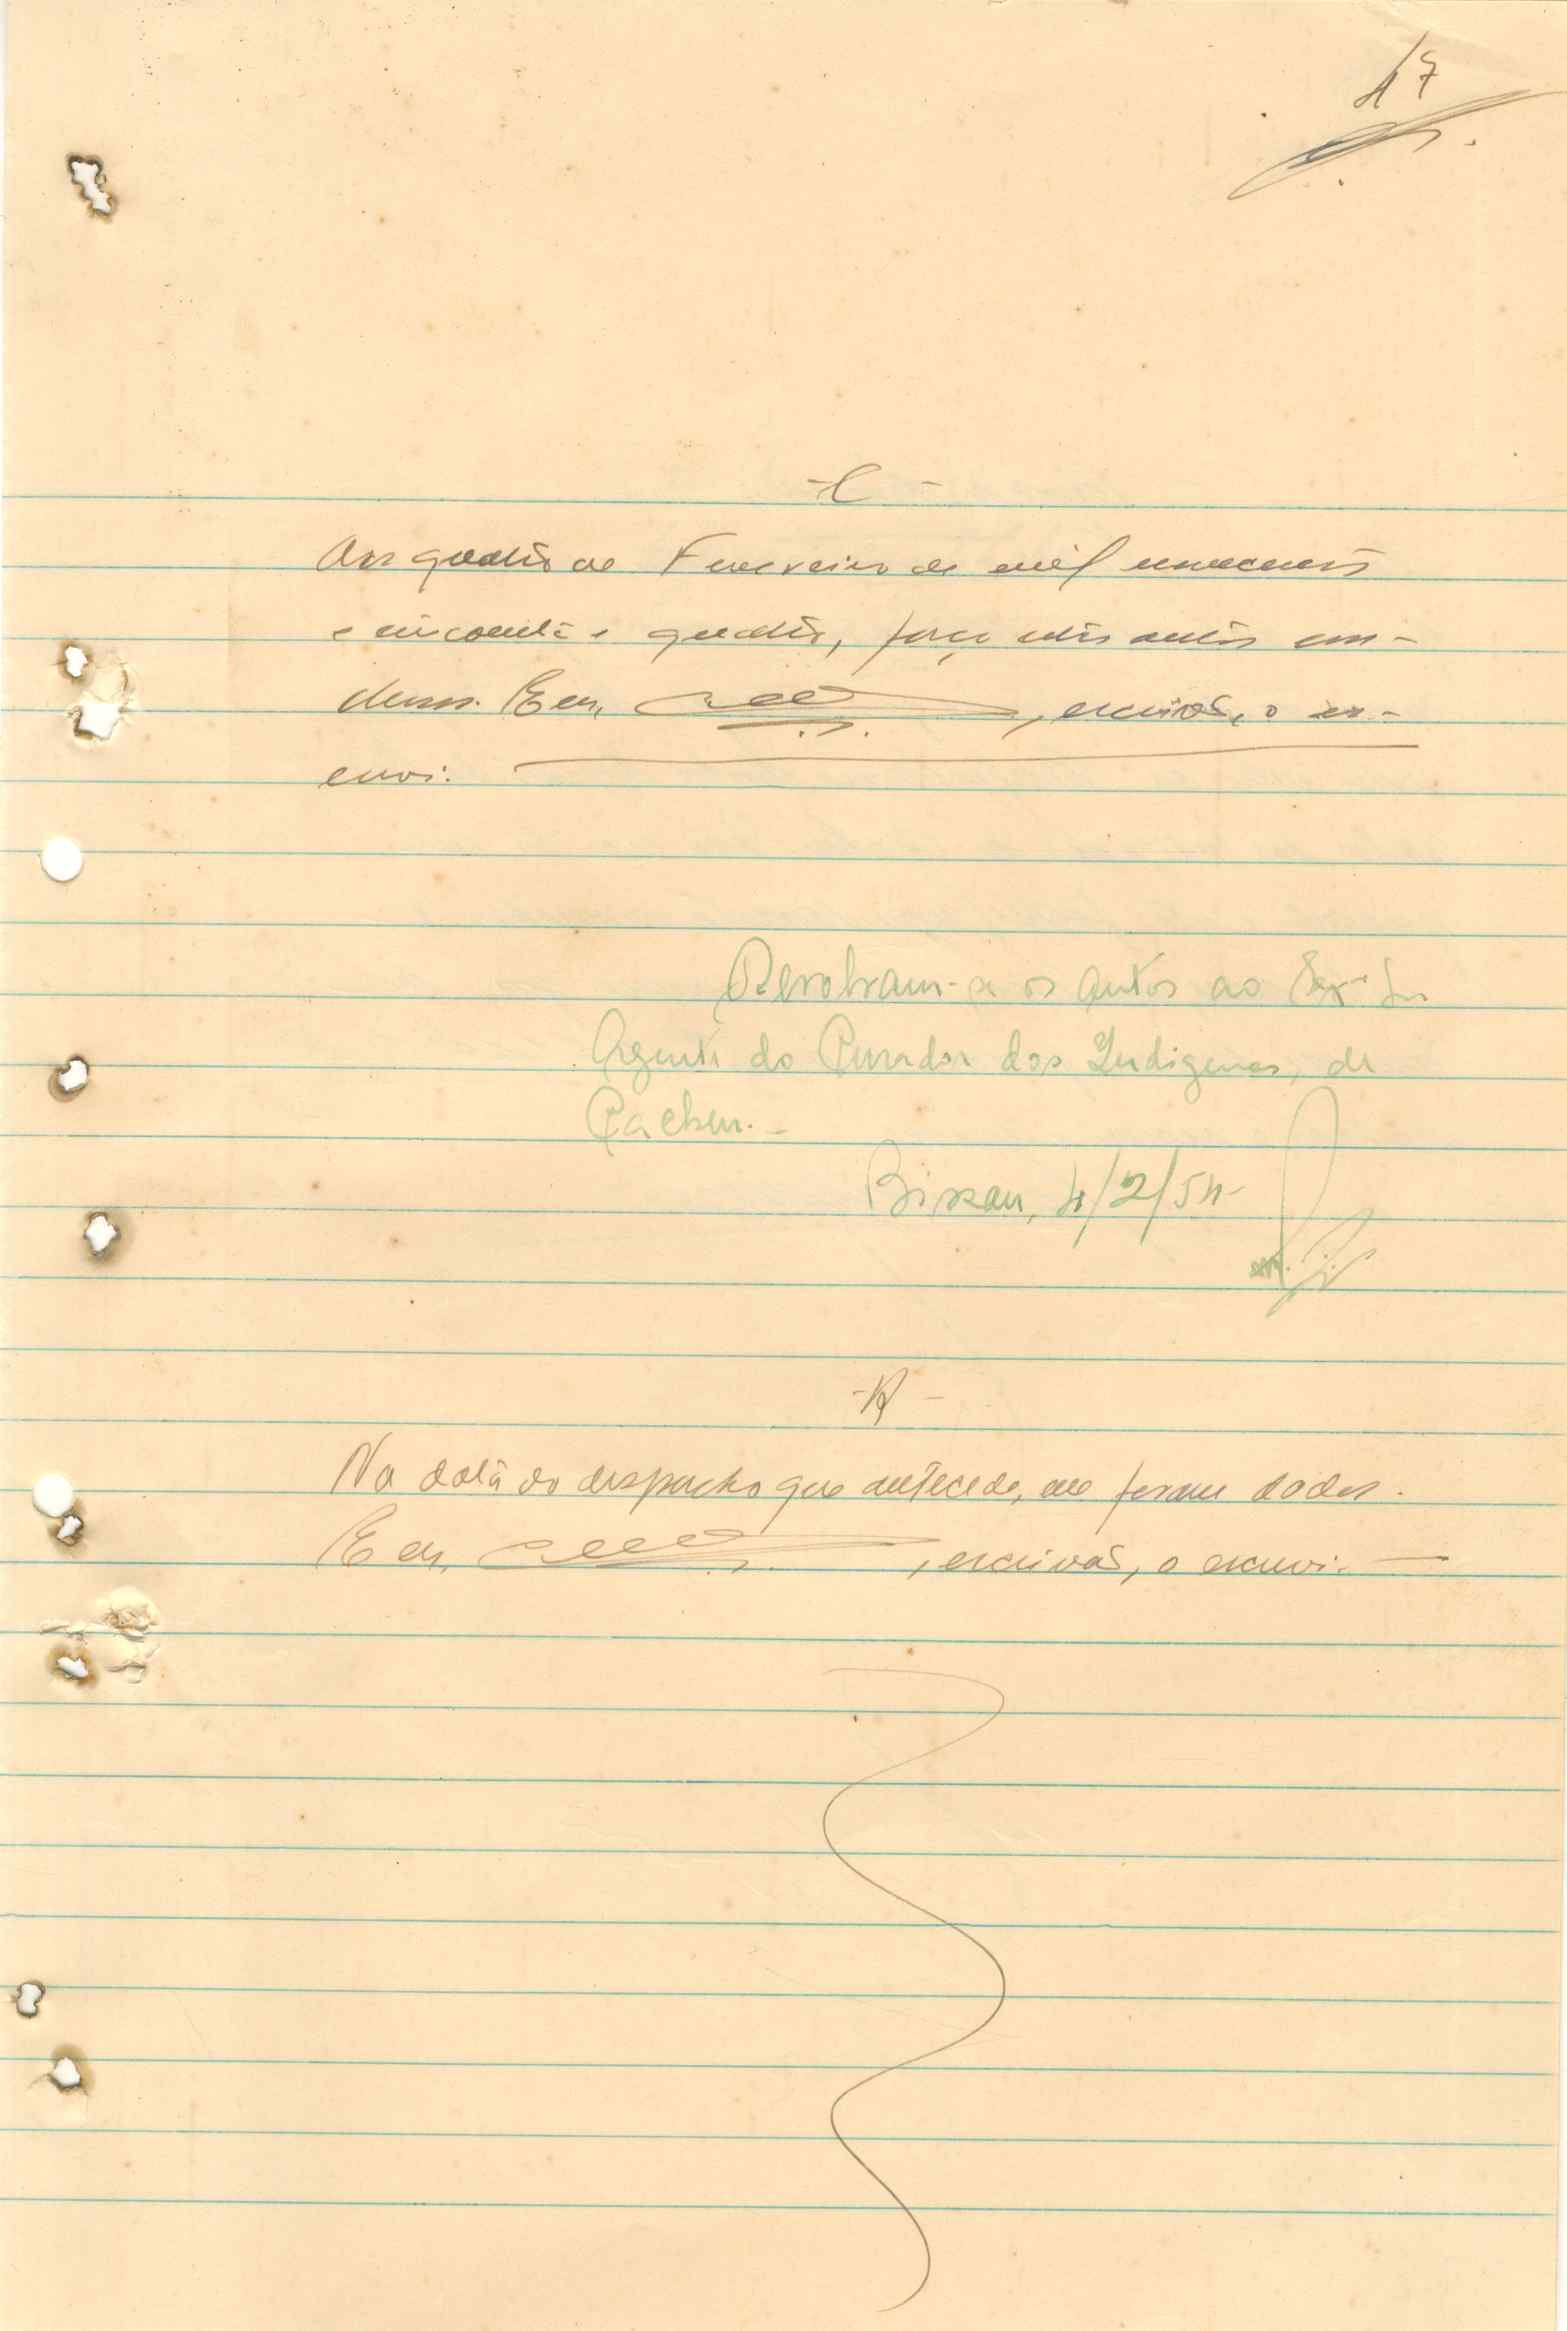 47
- C -
Aos quatro de Fevereiro de mil novecentos
e cincoenta e quatro, faço estes autos con-
clusos. E eu, , escrivão, o es-
crevi.
Devolvam-se os autos ao Exmº Snr
Agente do Curador dos Indígenas, de
Cacheu.-
Bissau, 4/2/54-
- R -
Na data do despacho que antecede, me foram dados.
E eu, , escrivão, o escrevi.